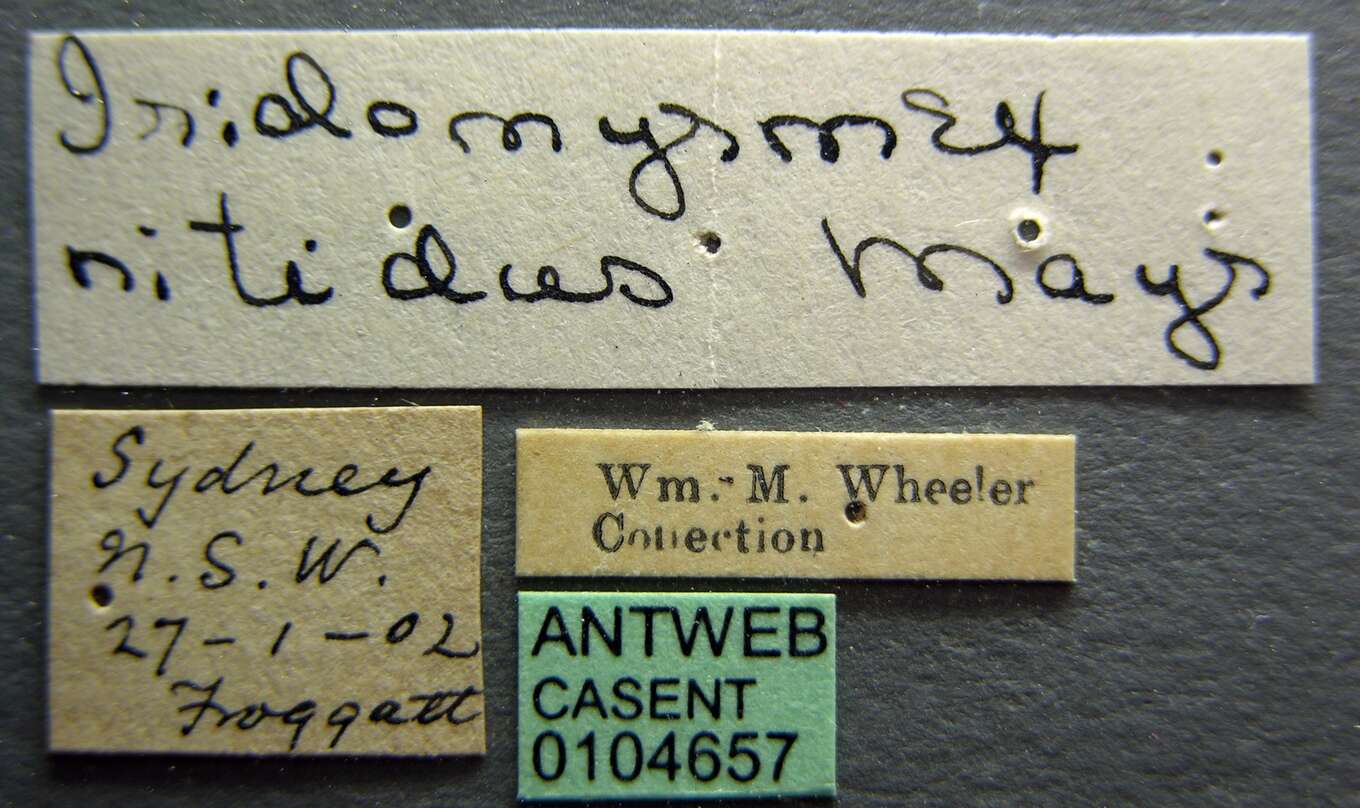 Iridomyrmex
nitidus Mayr
Sydney
N.S.W.
27-1-02
Froggatt
Wm. M. Wheeler
Collection
ANTWEB
CASENT
0104657